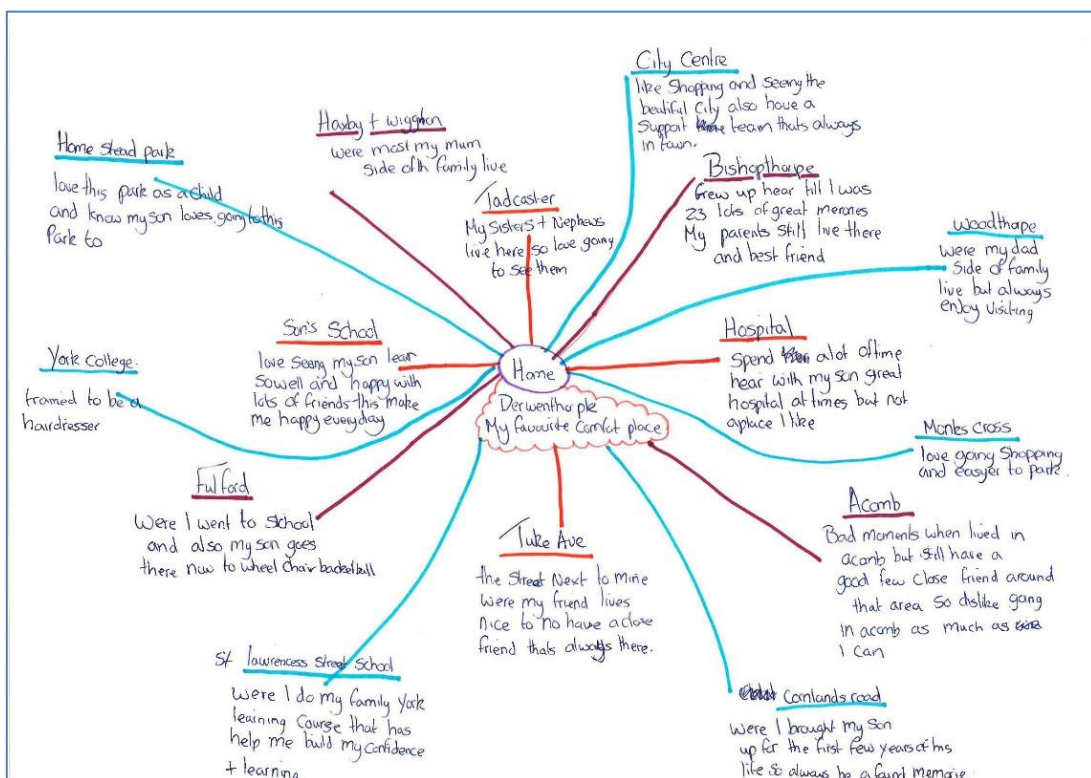 City Centre
like Shopping and seeing the
beautiful City also have a
Support team thats always
in town.
Haxby + wiggton
were most my mum
side of h family live
Home stead park
love this park as a child
and know my son loves going to this
Park to
Tadcaster
My Sisters + Nephews
live here so love going
to see them
Bishopthorpe
Grew up hear till I was
23 lots of great memories
My parents Still live there
and best friend
Woodthorpe
were my dad
side of family
live but always
enjoy visiting
Son's School
love seeing my son learn
so well and happy with
lots of friends this make
me happy everyday
Home
Derwenthorpe
My favourite Comfot place
Hospital
Spend alot of time
hear with my son great
hospital at times but not
a place I like
York College.
trained to be a
hairdresser
Monks Cross
love going Shopping
and easyer to park.
Fulford
Were I went to School
and also my son goes
there now to wheel chair basketball
Tuke Ave
the Street Next to Mine
were my friend lives
nice to no have a close
friend thats always there.
Acomb
Bad moments when lived in
acomb but still have a
good few close friend around
that area so dislike going
in acomb as much as
I can
St lawrencess Street School
were I do my family York
learning Course that has
help me build my Confidence
+ learning
Cornlands road
were I brought my Son
up for the first few years of his
life so always be a found memorie